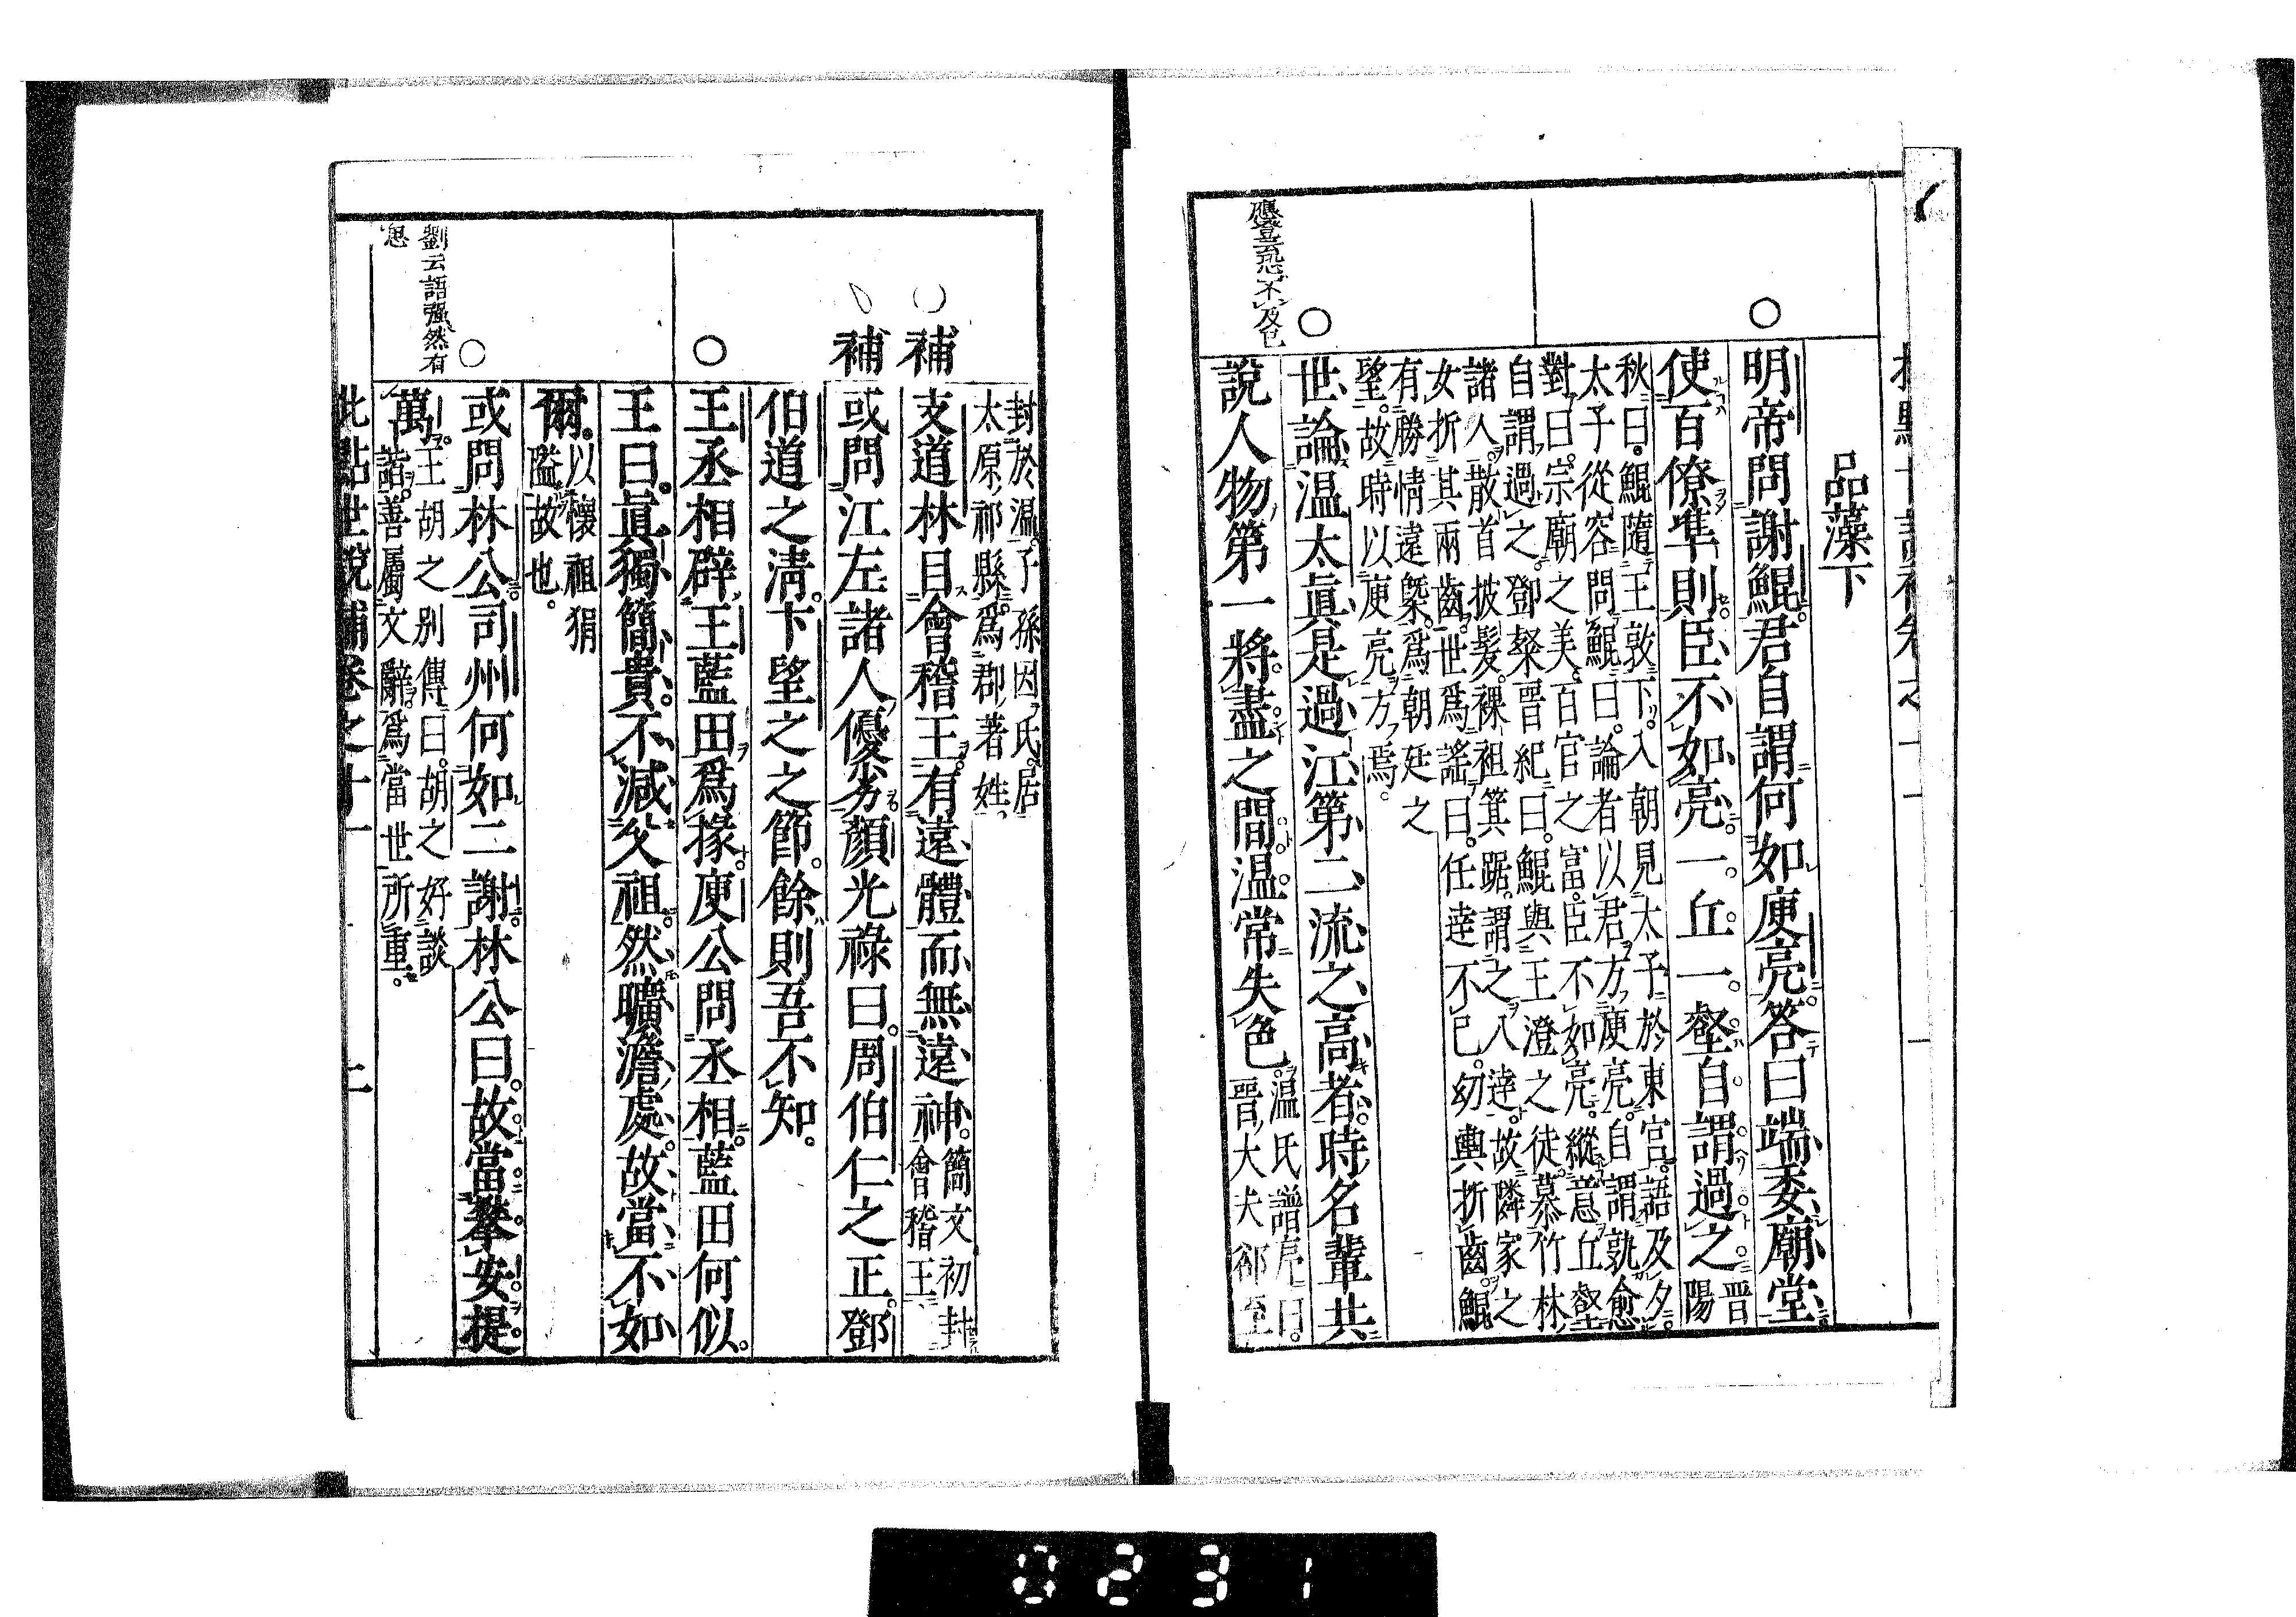 品藻下
明帝問謝鯤君自謂何如庾亮答曰端委廟堂
使百僚準則臣不如亮一丘一壑自謂過之
晉陽
秋曰鯤隨王敦下入朝見太子於東宮語及夕
太子從容問鯤曰論者以君方庾亮自謂孰愈
對曰宗廟之美百官之富臣不如亮縱意丘壑
自謂過之鄧粲晉紀曰鯤與王澄之徒慕竹林
諸人散首披髮裸袒箕踞謂之八達故隣家之
女折其兩齒世爲謠曰任達不已幼輿折齒鯤
有勝情遠槩爲朝廷之
望故時以庾亮方焉
世論温太眞是過江第二流之高者時名輩共
說人物第一將盡之間温常失色
温氏譜序曰
晉大夫郤至
應登云恐不及己
封於温子孫因氏居
太原祁縣爲郡著姓
補
支道林目會稽王有遠體而無遠神
簡文初封
會稽王
補
或問江左諸人優劣顏光祿曰周伯仁之正鄧
伯道之清卞望之之節餘則吾不知
王丞相辟王藍田爲掾庾公問丞相藍田何似
王曰眞獨簡貴不減父祖然曠澹處故當不如
爾
以懷祖狷
隘故也
或問林公司州何如二謝林公曰故當攀安提
萬
王胡之別傳曰胡之好談
諧善屬文辭爲當世所重
劉云語強然有
思
批點世說補卷之十一
上
0231